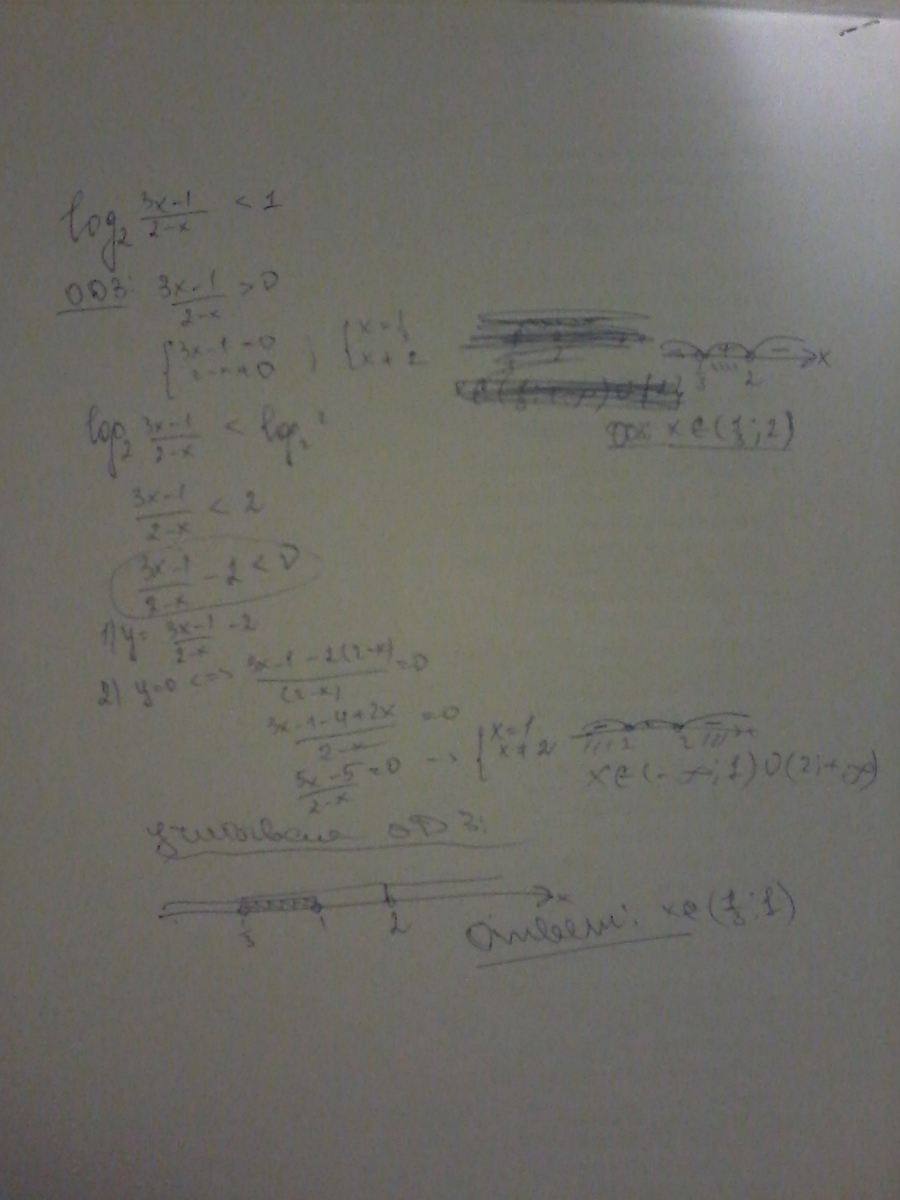 log₂ (3x-1)/(2-x) < 1
ОДЗ: (3x-1)/(2-x) > 0
{3x-1=0 2-x≠0 ; {x=1/3 x≠2
- + - x
1/3 2
x∈(1/3;2)
log₂ (3x-1)/(2-x) < log₂ 2
(3x-1)/(2-x) < 2
(3x-1)/(2-x) - 2 < 0
1) y= (3x-1)/(2-x) - 2
2) y=0 <=> (3x-1-2(2-x))/(2-x) = 0
(3x-1-4+2x)/(2-x) = 0
(5x-5)/(2-x) = 0 -> {x=1 x≠2
- + -
1 2
x∈(-∞;1)∪(2;+∞)
учитывая ОДЗ:
1/3 1 2 x
Ответ: x∈(1/3;1)